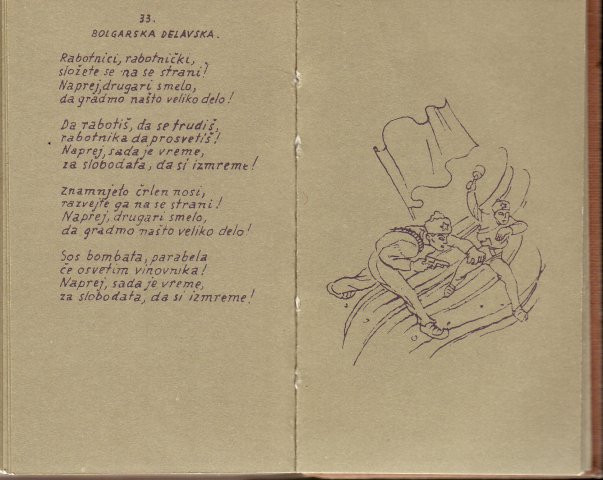 33.
BOLGARSKA DELAVSKA.
Rabotnici, rabotnički,
složete se na se strani!
Naprej, drugari smelo,
da gradmo našto veliko delo!
Da rabotiš, da se trudiš,
rabotnika da prosvetiš!
Naprej, sada je vreme,
za slobodata, da si izmreme!
Znamnjeto črlen nosi,
razvejte ga na se strani!
Naprej, drugari smelo,
da gradmo našto veliko delo!
Sos bombata, parabela
če osvetim vinovnika!
Naprej, sada je vreme,
za slobodata, da si izmreme!